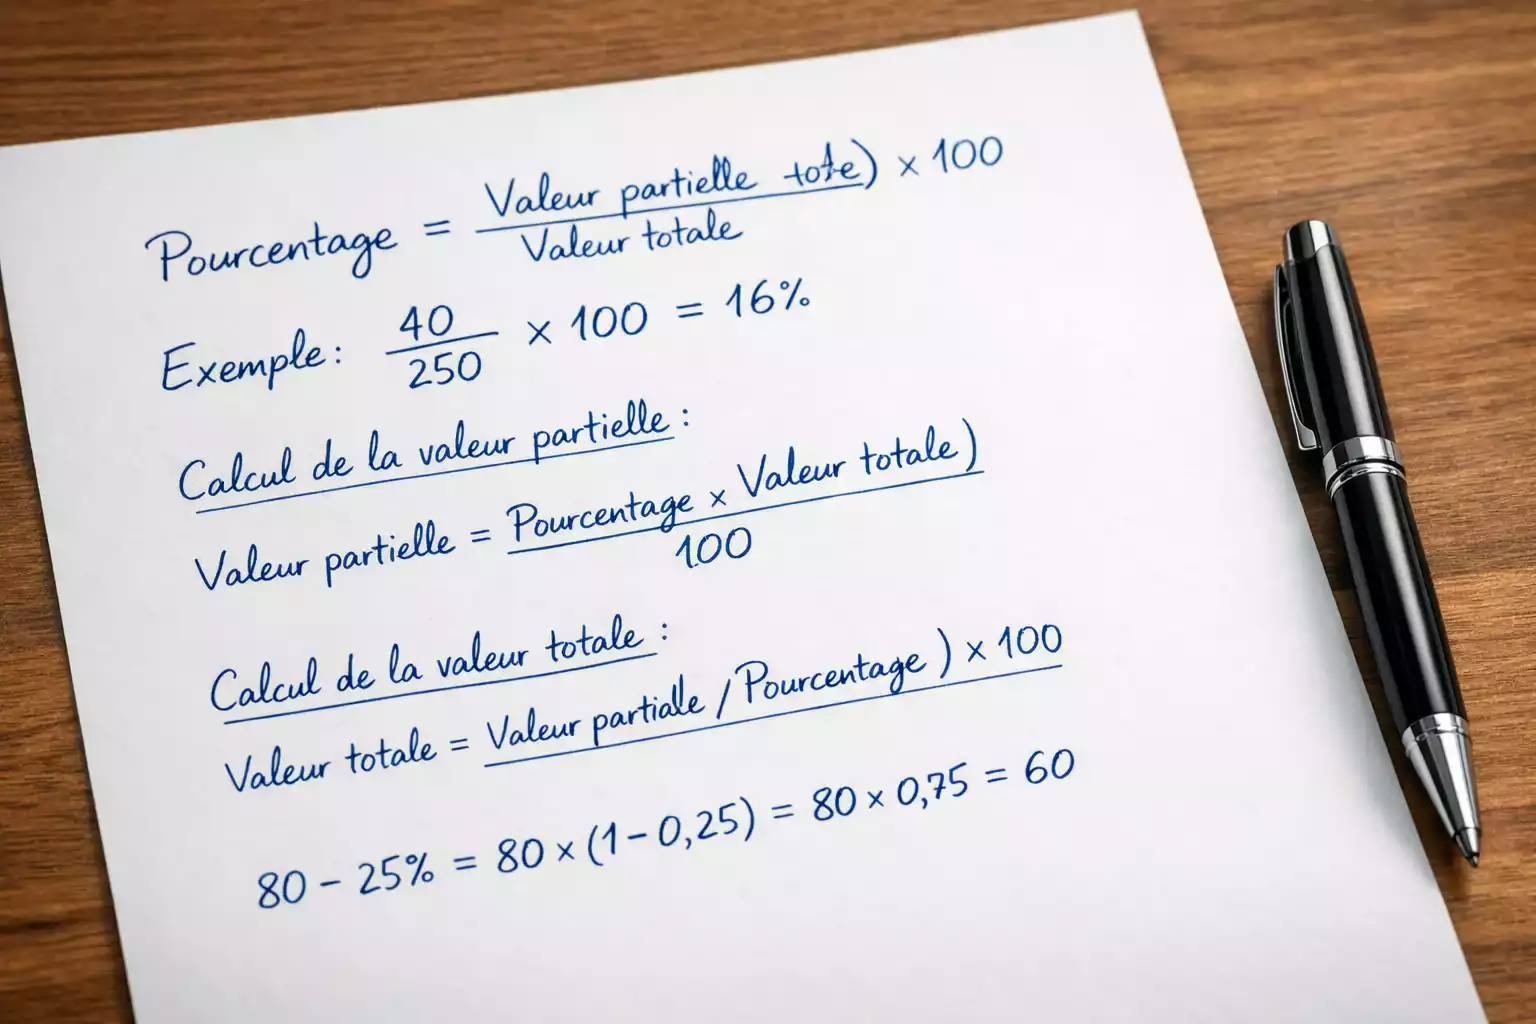 Pourcentage = Valeur partielle tote) × 100
Valeur totale
Exemple: 40/250 × 100 = 16%
Calcul de la valeur partielle :
Valeur partielle = Pourcentage × Valeur totale)
100
Calcul de la valeur totale :
Valeur totale = Valeur partialle / Pourcentage ) × 100
80 − 25% = 80 × (1 − 0,25) = 80 × 0,75 = 60